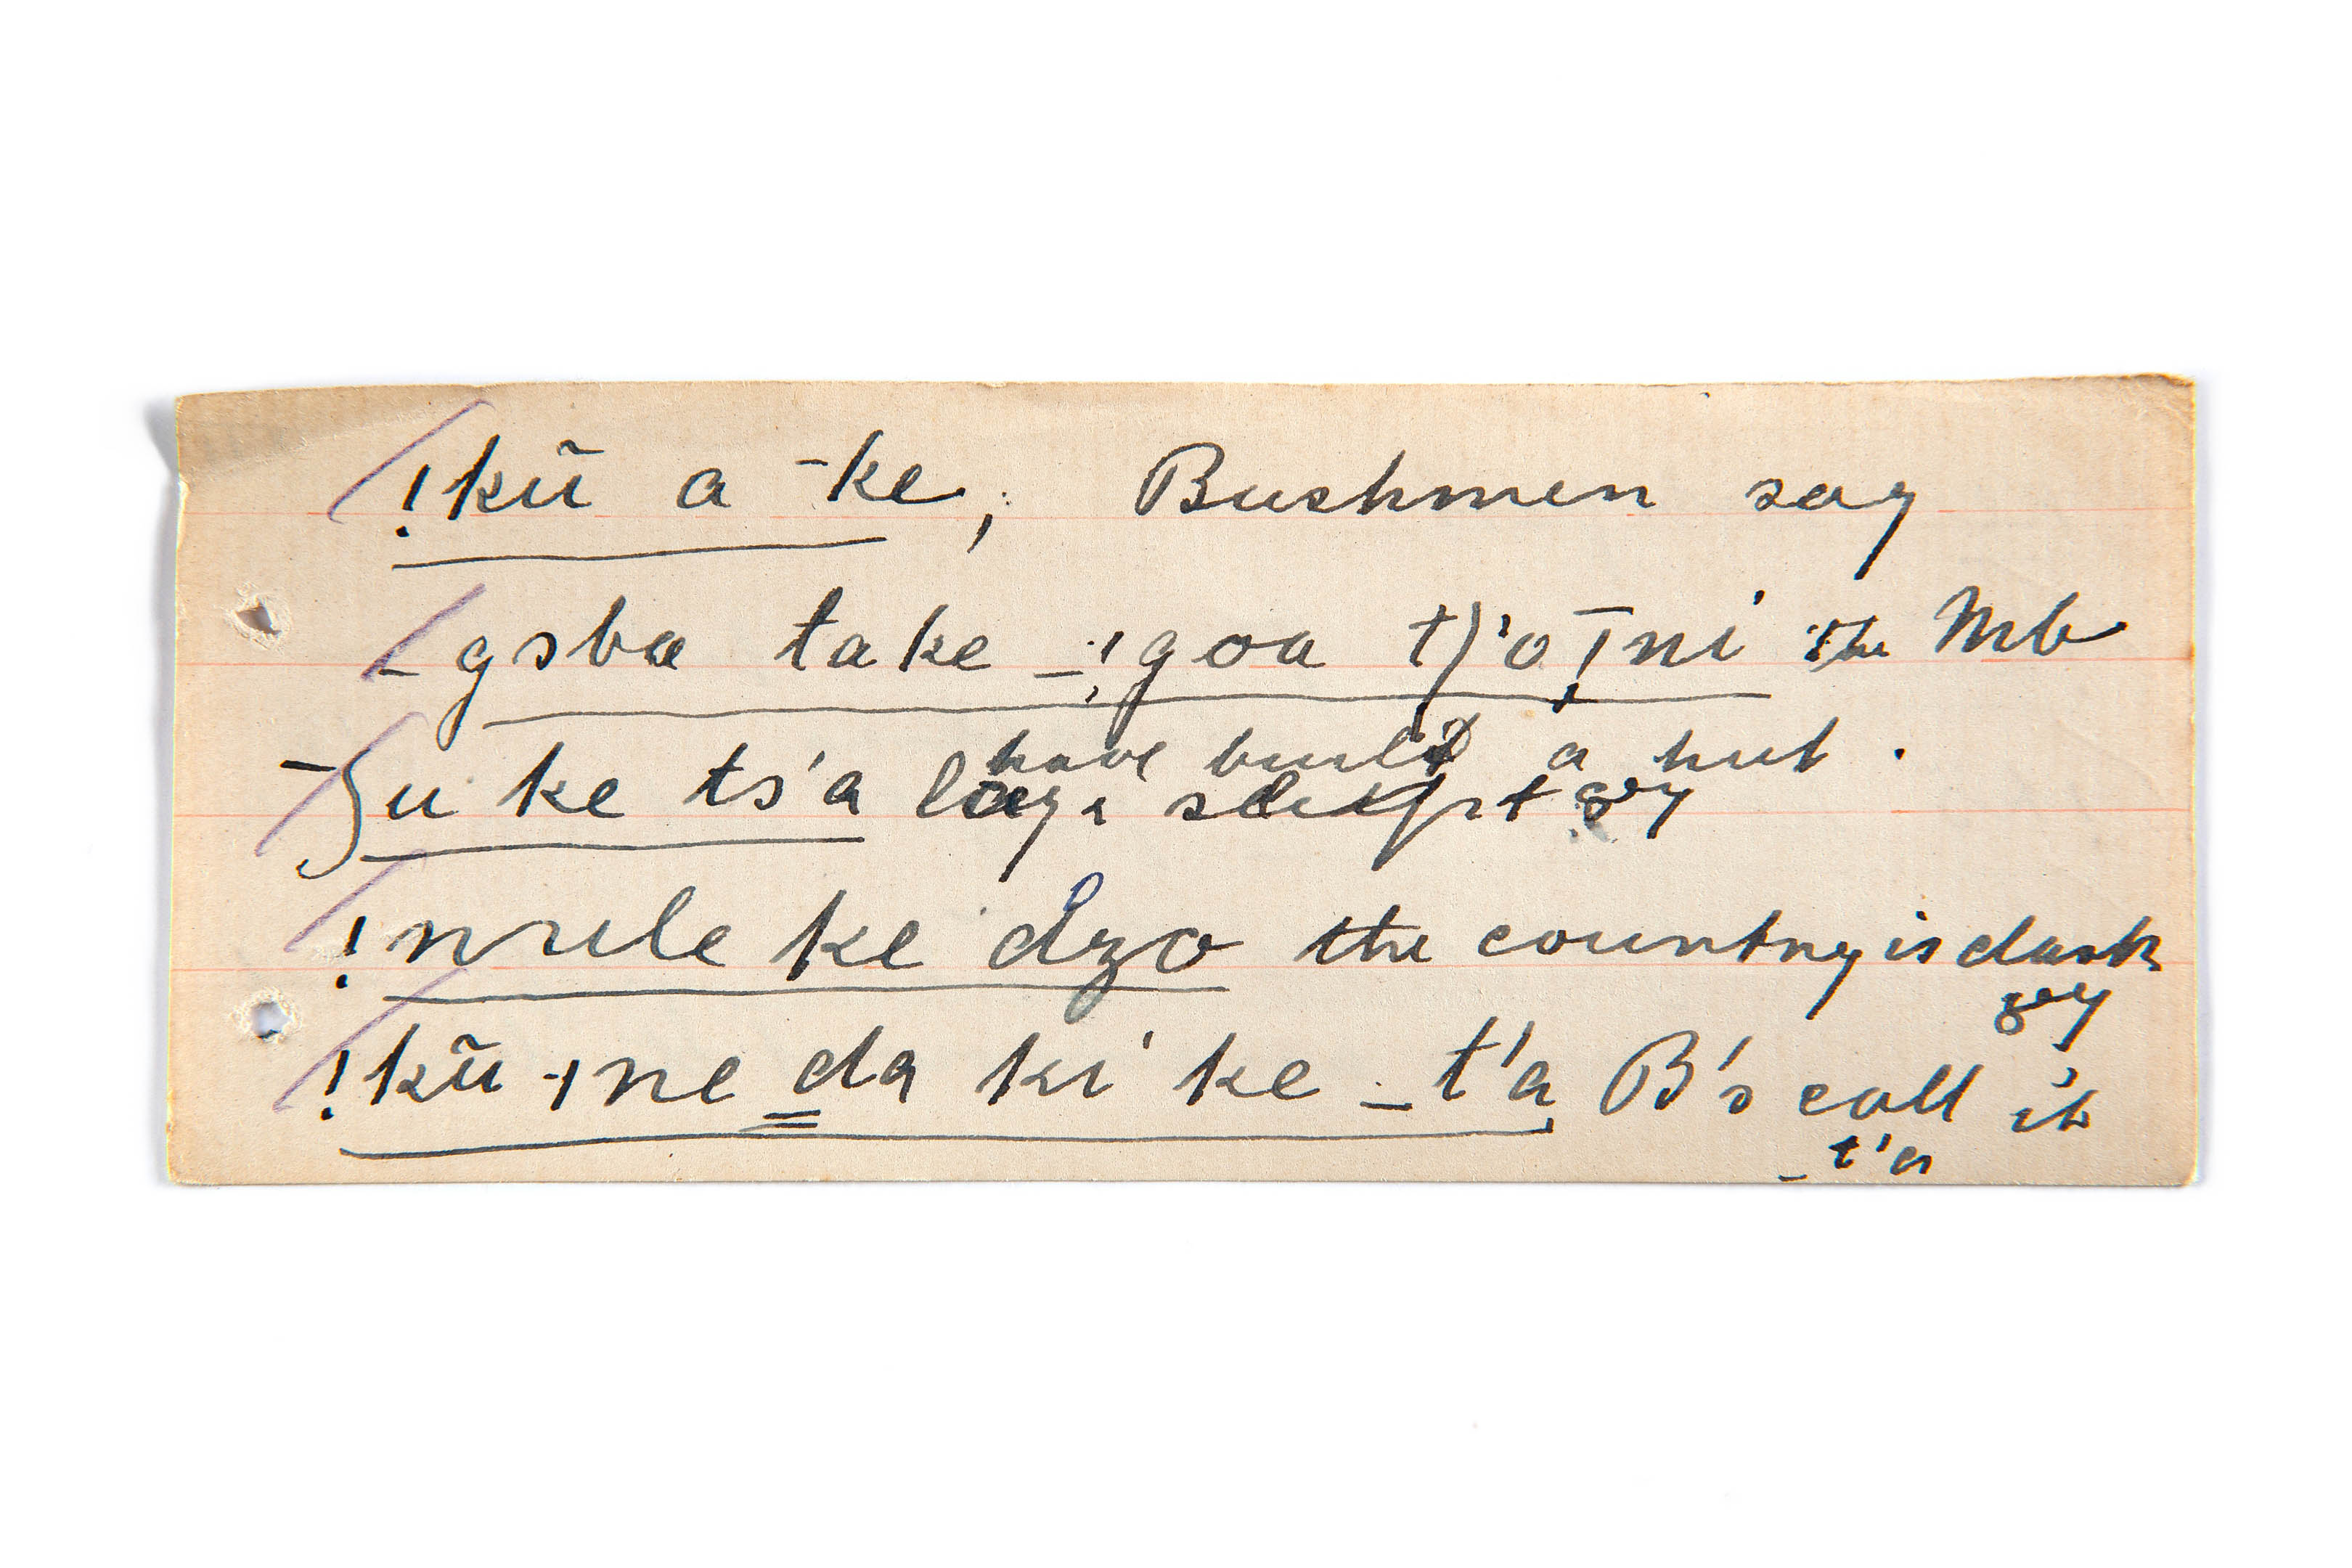 !kũ a ¯ke, Bushmen say
_gɔba take _!goa tʃ'o ¯!ni the Mb
have built a hut.
¯ʒu ke ts'a lay, slept
!nule ke dzo the country is dark
!kũ ne da ki ke _t'a B's call it
_t'a